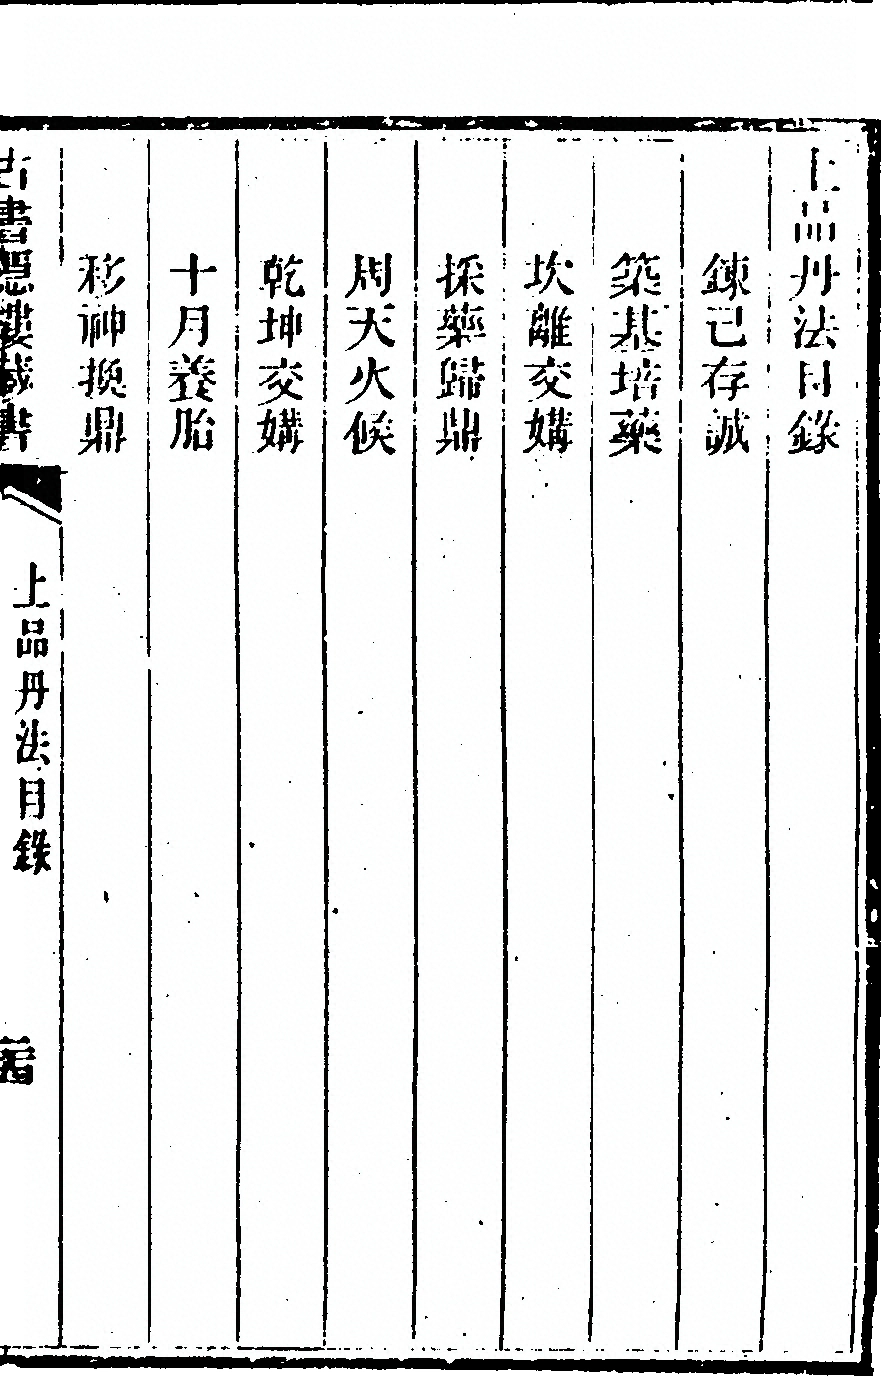 上品丹法目錄
鍊己存誠
築基培藥
坎離交媾
採藥歸鼎
周天火候
乾坤交媾
十月養胎
移神換鼎
古書隱樓藏書
上品丹法目錄